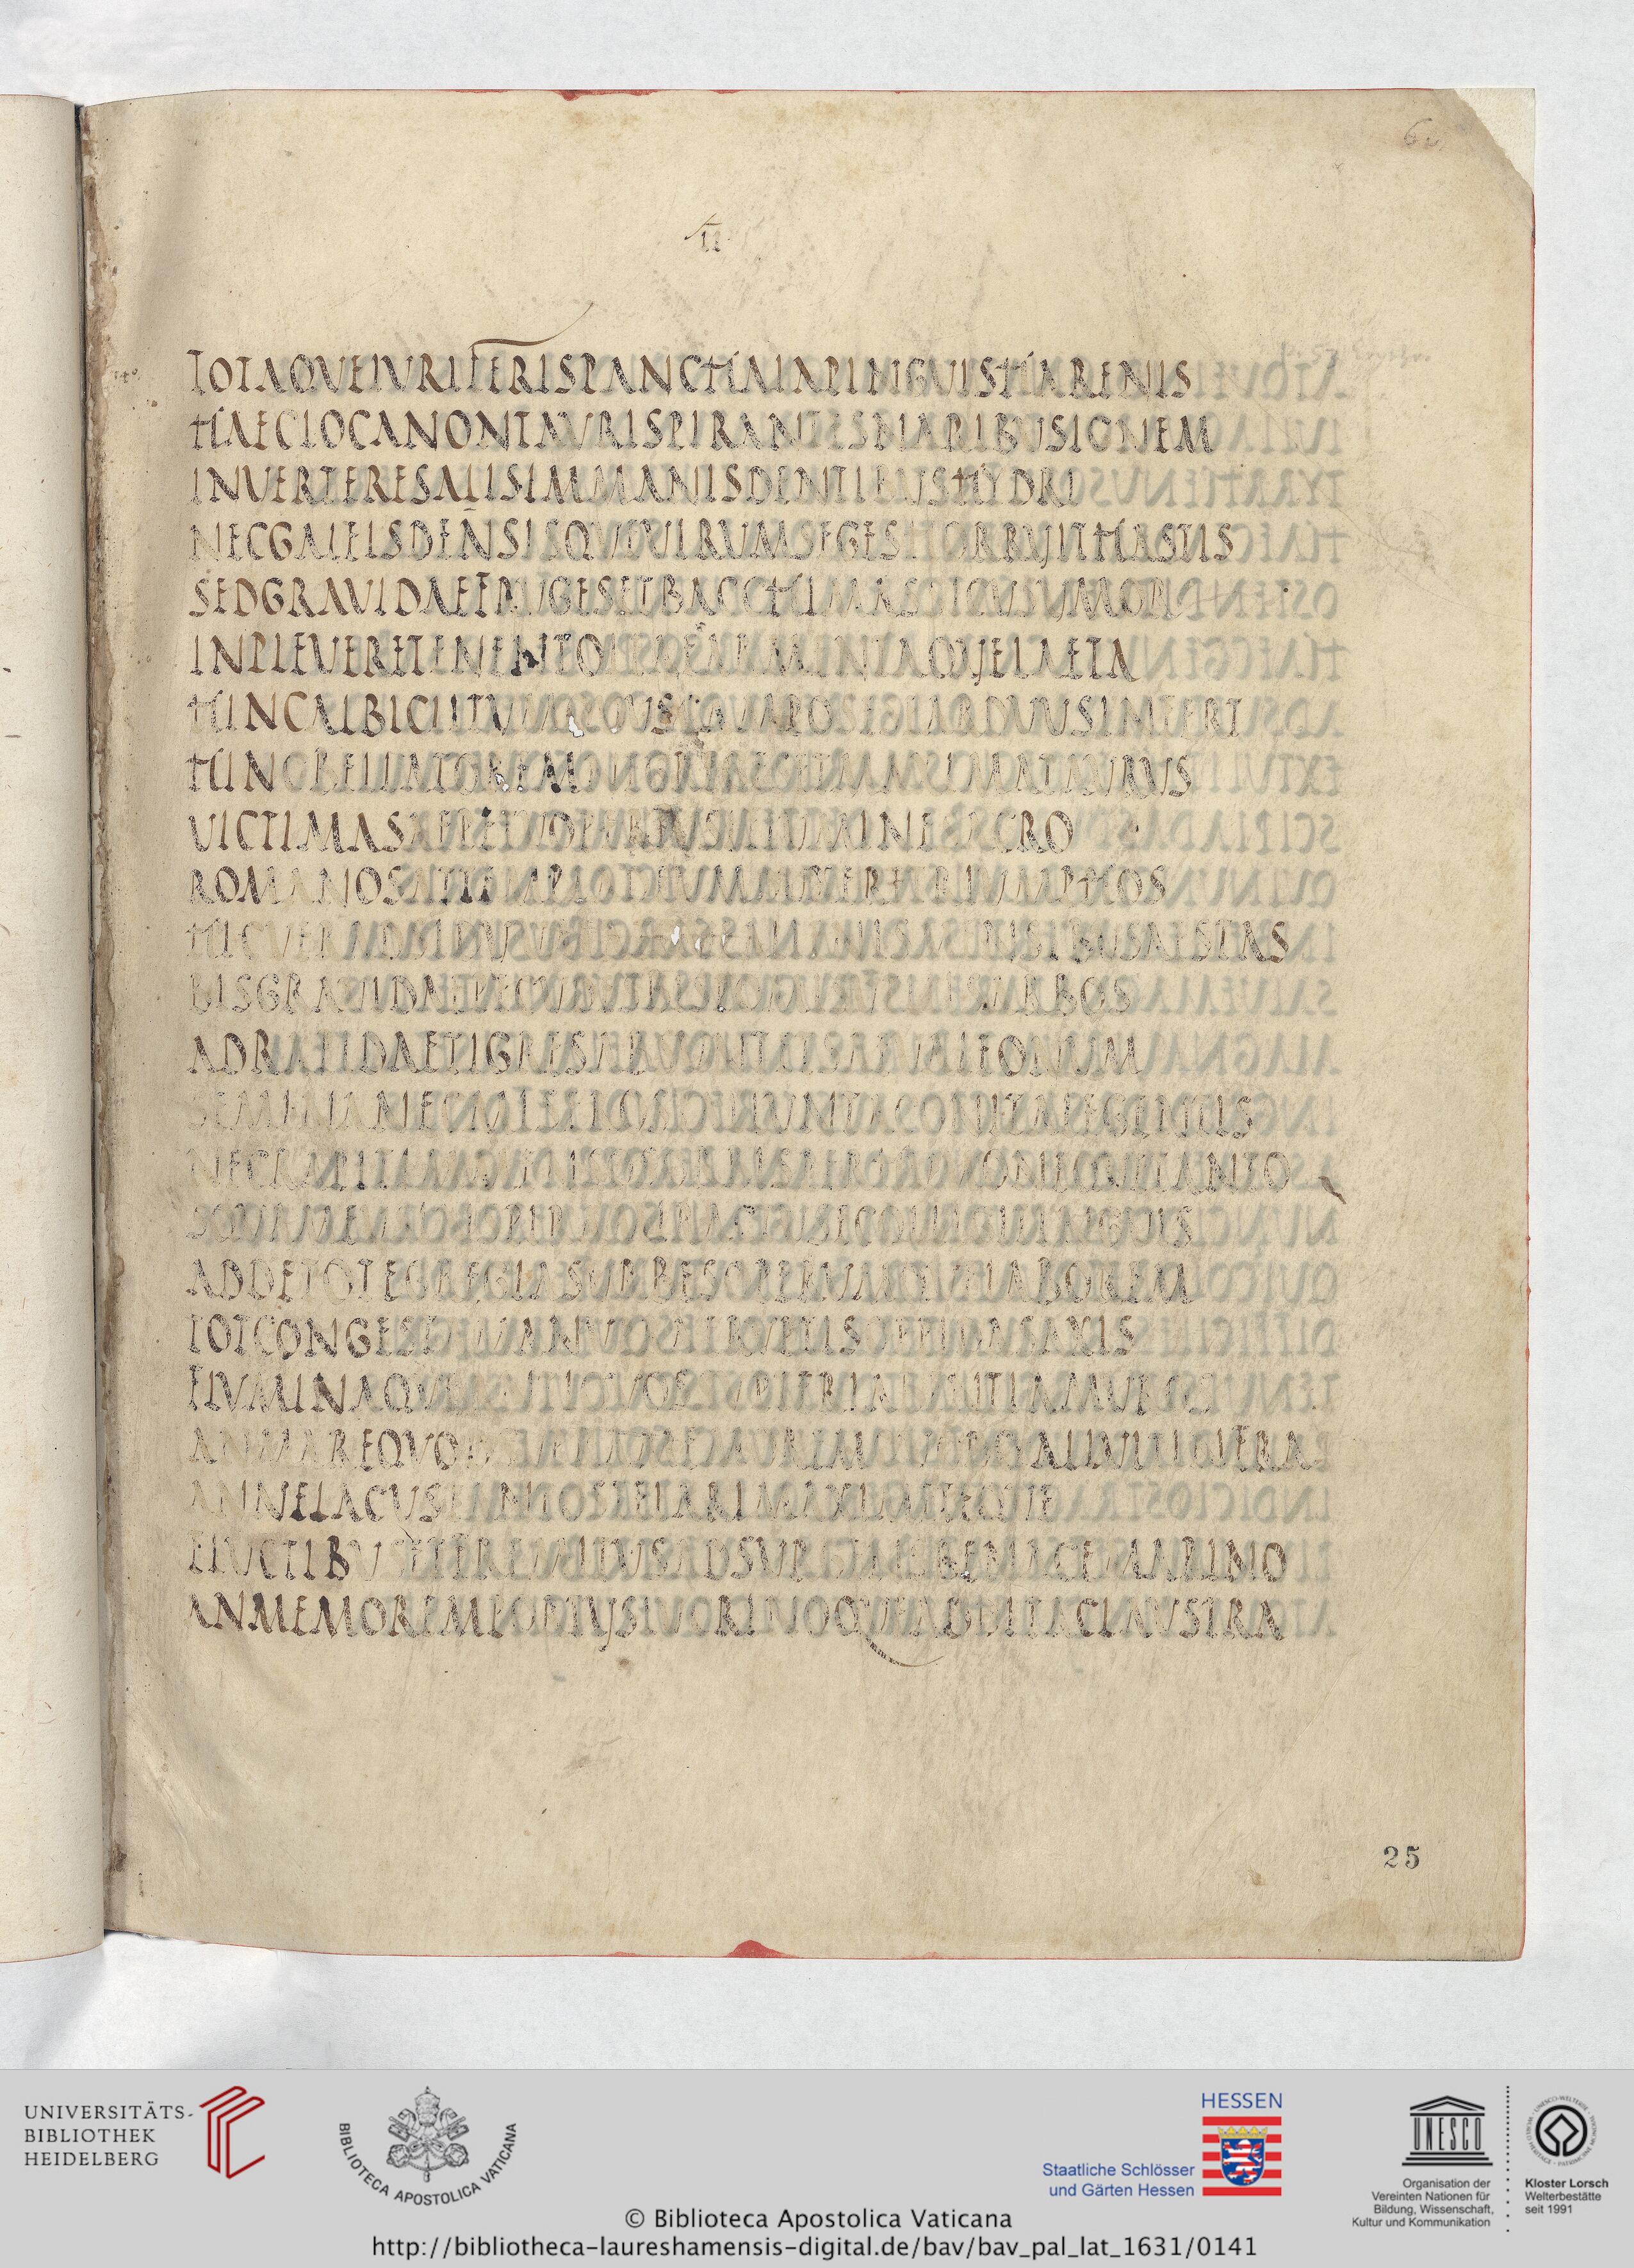 TOTAQVETVRIFERISPANCHAIAPINGVISHARENIS
HAECLOCANONTAVRISPIRANTESNARIBVSIGNEM
INVERTERESATISIMMANISDENTIBVSHYDRI
NECGALEISDENSISQVEVIRVMSEGESHORRVITHASTIS
SEDGRAVIDAEFRVGESETBACCHIMASSICVSVMOR
INPLEVERETENENTOLEAEARMENTAQVELAETA
HINCALBICLITV ARDVVSINFERT
HINCBELLATOREM MAXIMATAVRVS
VICTIMASAEPETVOPERFVSIFLVMINESACRO
ROMANOSADTEMPLADEVMDVXERETRIVMPHOS
HICVERADSIDVVMATQVEALIENISMENSIBVSAESTAS
BISGRAVIDAEPECVDESBISPOMISVTILISARBOS
ADRABIDAETIGRESABSVNTETSAEVALEONVM
SEMINANECMISEROSFALLVNTACONITALEGENTIS
NECRAPITIMMENSOSORBISPERHVMVMNEQVETANTO
SQVAMEVSINSPIRAMTRACTVSECOLLIGITANGVIS
ADDETOTEGREGIASVRBESOPERVMQVELABOREM
TOTCONGESTAMANVPRAERVPTISOPPIDASAXIS
FLVMINAQVEANTIQVOSSVBTERLABENTIAMVROS
ANMAREQVODSVPRAMEMOREMQVODQVEALLVITINFRA
ANNELACVSTANTOSTELARIMAXIMETEQVE
FLVCTIBVSETFREMITVADSVRGENSBENACEMARINO
ANMEMOREMPORTVSLVCRINOQVEADDITACLAVSTRA
25
UNIVERSITÄTS-
BIBLIOTHEK
HEIDELBERG
BIBLIOTECA APOSTOLICA VATICANA
HESSEN
Staatliche Schlösser
und Gärten Hessen
UNESCO
Organisation der
Vereinten Nationen für
Bildung, Wissenschaft,
Kultur und Kommunikation
Kloster Lorsch
Welterbestätte
seit 1991
© Biblioteca Apostolica Vaticana
http://bibliotheca-laureshamensis-digital.de/bav/bav_pal_lat_1631/0141